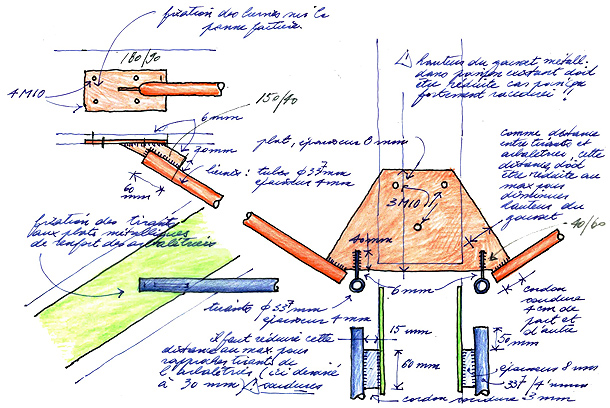 fixation des liernes sur la
panne faîtière.
180/90
4M10
6mm
150/40
20mm
60
mm
plat, épaisseur 8 mm
liernes : tubes ∅ 33⁷ mm
épaisseur 4 mm
hauteur du gousset métall.
dans poinçon existant doit
être réduite car poinçon
fortement raccourci !!
comme distance
entre tirants et
arbalétriers, cette
distance doit
être réduite au
max pour
diminuer
hauteur du
gousset
3M10
40/60
40mm
6mm
fixation des tirants
aux plats métalliques
de renfort des arbalétriers
tirants ∅ 33⁷ mm
épaisseur 4 mm
cordon
soudure
4 cm de
part et
d'autre
il faut réduire cette
distance au max. pour
rapprocher tirants de
l'arbalétrier (ici dessiné
à 30 mm)
soudures
15 mm
60mm
50
mm
épaisseur 8 mm
33⁷/4 mm
cordon soudure 3 mm